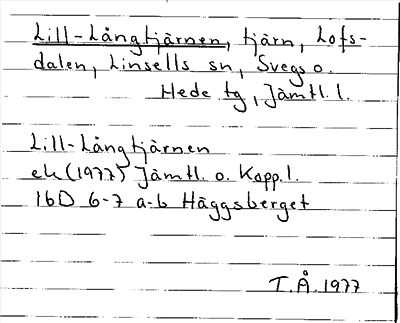 Lill-Långtjärnen, tjärn, Lofs-
dalen, Linsells sn, Svegs o.
Hede tg, Jämtl. l.
Lill-Långtjärnen
ek (1977) Jämtl. o. Kopp. l.
16D 6-7 a-b Häggsberget
T.Å. 1977